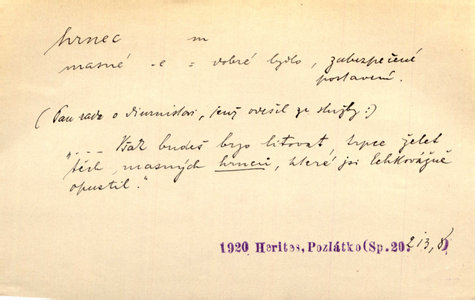 hrnec m
masné -e = dobré bydlo, zabezpečené
postavení.
(Pan rada o diurnistovi, jenž odešel ze služby:)
"... Však budeš brzo litovat, trpce želet
těch masných hrnců, které jsi lehkovážně
opustil."
1920 Herites, Pozlátko (Sp. 20.